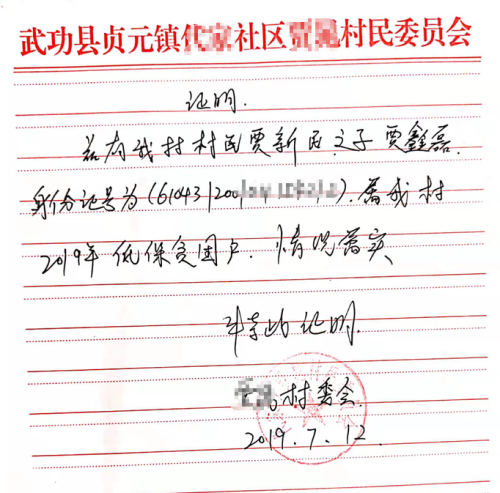 武功县贞元镇代家社区贾 村民委员会
证明.
兹有我村村民贾新民之子贾鑫磊.
身份证号为(610431200 ).属我村
2019年低保贫困户.情况属实
特此证明.
村委会.
2019.7.12.